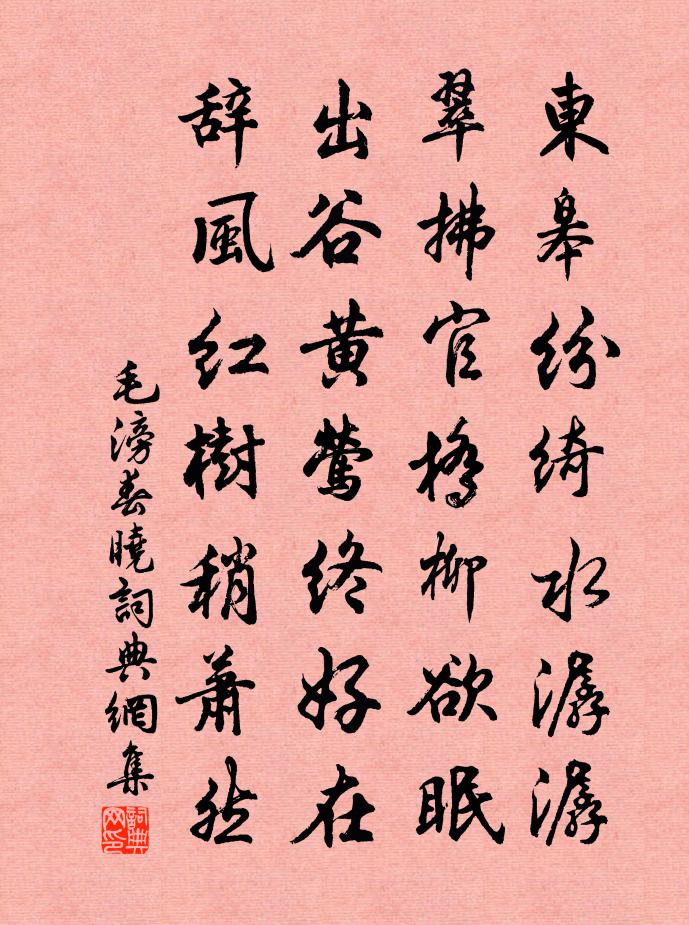 東皋紛綺水潺潺
翠拂官橋柳欲眠
出谷黄鶯終好在
辞風紅樹稍蕭然
毛滂春曉詞典網集
詞典网印